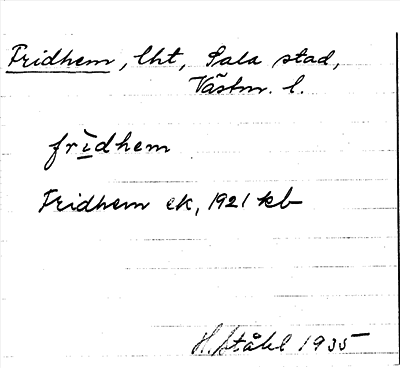 Fridhem, lht, Sala stad,
Västm. l.
frìdhem
Fridhem ek, 1921 kb
H. Ståhl 1935